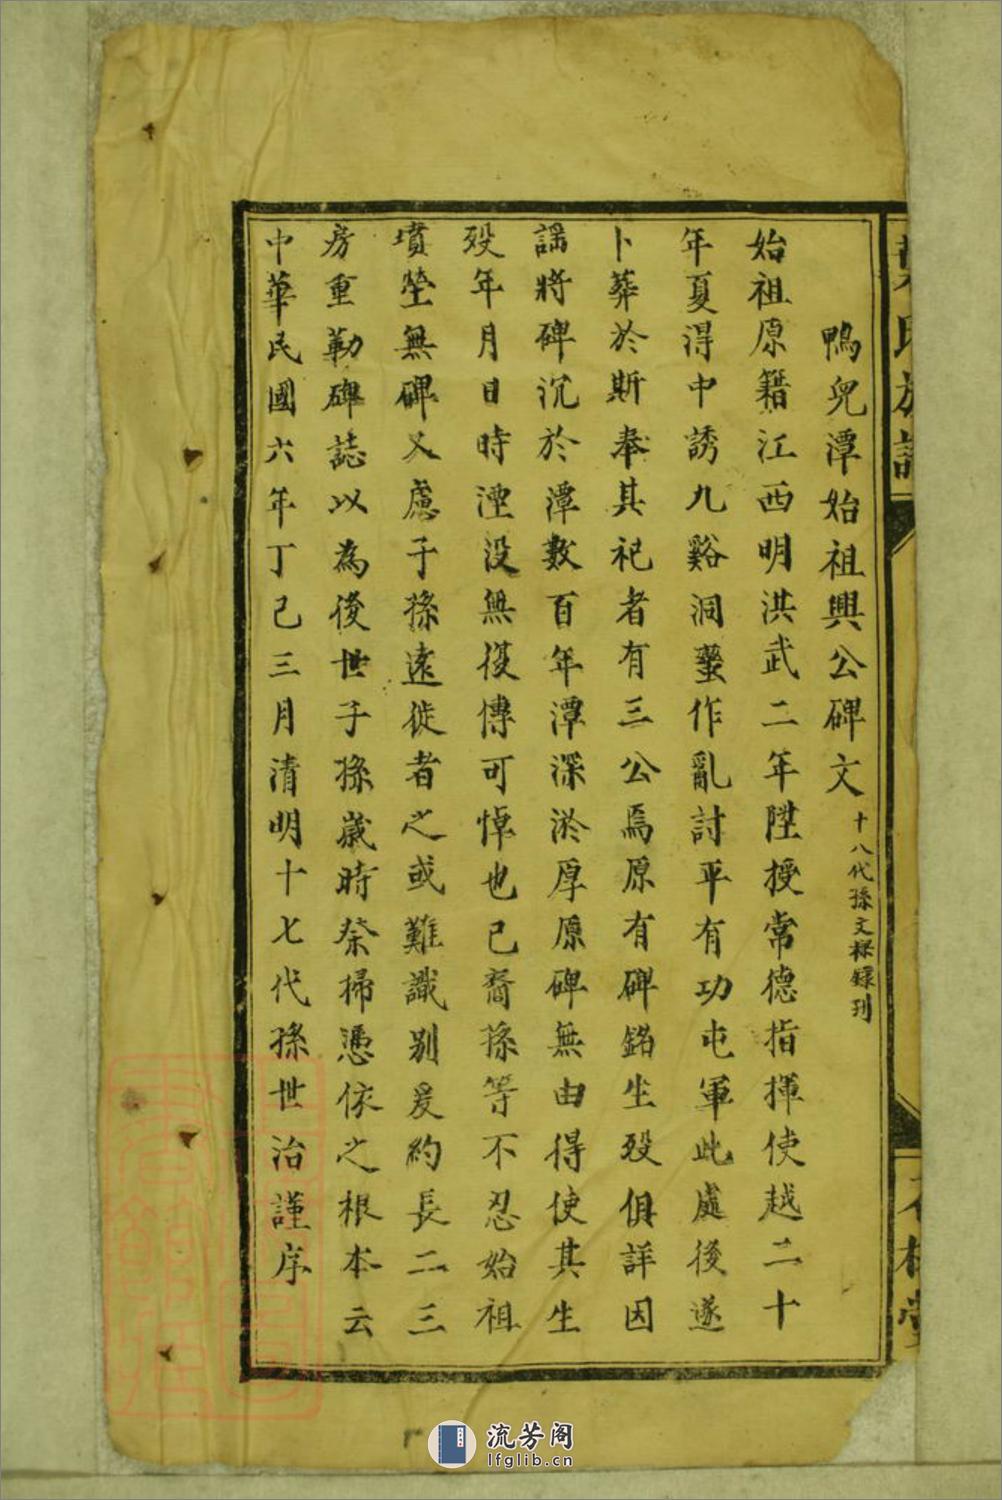 鴨兒潭始祖興公碑文 十八代孫文𣗳錄刊
始祖原籍江西明洪武二年陞授常德指揮使越二十
年夏得中誘九谿洞蠻作亂討平有功屯軍此處後遂
卜葬於斯奉其祀者有三公焉原有碑銘生歿俱詳因
謠將碑沉於潭數百年潭深淤厚原碑無由得使其生
歿年月日時湮沒無復傳可悼也已裔孫等不忍始祖
墳塋無碑又慮子孫遠徙者之或難識别爰約長二三
房重勒碑誌以為後世子孫歲時祭掃憑依之根本云
中華民國六年丁巳三月清明十七代孫世治謹序
氏族譜
堂
流芳阁
lfglib.cn